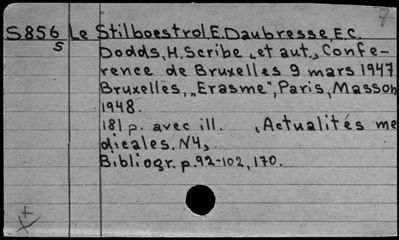 S856 Le Stilboestrol.E.Daubresse,E.C.
S Dodds,H.Scribe „et aut.„ Confe-
rence de Bruxelles 9 mars 1947
Bruxelles,„Erasme",Paris,Masson
1948.
181 p. avec ill. „Actualités me
dicales. N4„
Bibliogr.p.92-102,170.